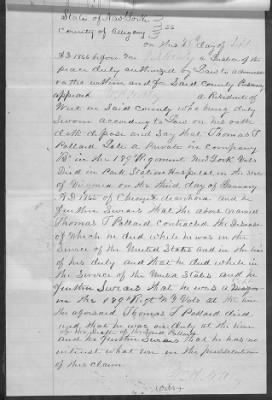 State of New York
County of Allegany } ss
on this day of
AD 1866 before me a Justice of the
peace duly authorized by Law to administer
oaths within and for Said County Personaly
appeard a Resident of
West in Said County who being duly
Sworn according to Law on his oath
doth depose and Say that Thomas T
Pollard Late a Private in Company
"B" in the 189th Regiment New York Vols
Died in Park Station Hospital in the State
of Virginia on the third day of January
AD 1865 of Chronic diarrhoea and he
further Swears that the above named
Thomas T Pollard contracted the Disease
of which he died while he was in the
Service of the United States and in the line
of his duty and that he died while in
the Service of the United States and he
further Swears that he was a
in the 189th Regt N Y Vols at the time
the aforesaid Thomas T Pollard died
and that he was on duty at the time
of the death of Thomas Pollard
and he further Swears that he has no
interest what ever in the prosecution
of this claim